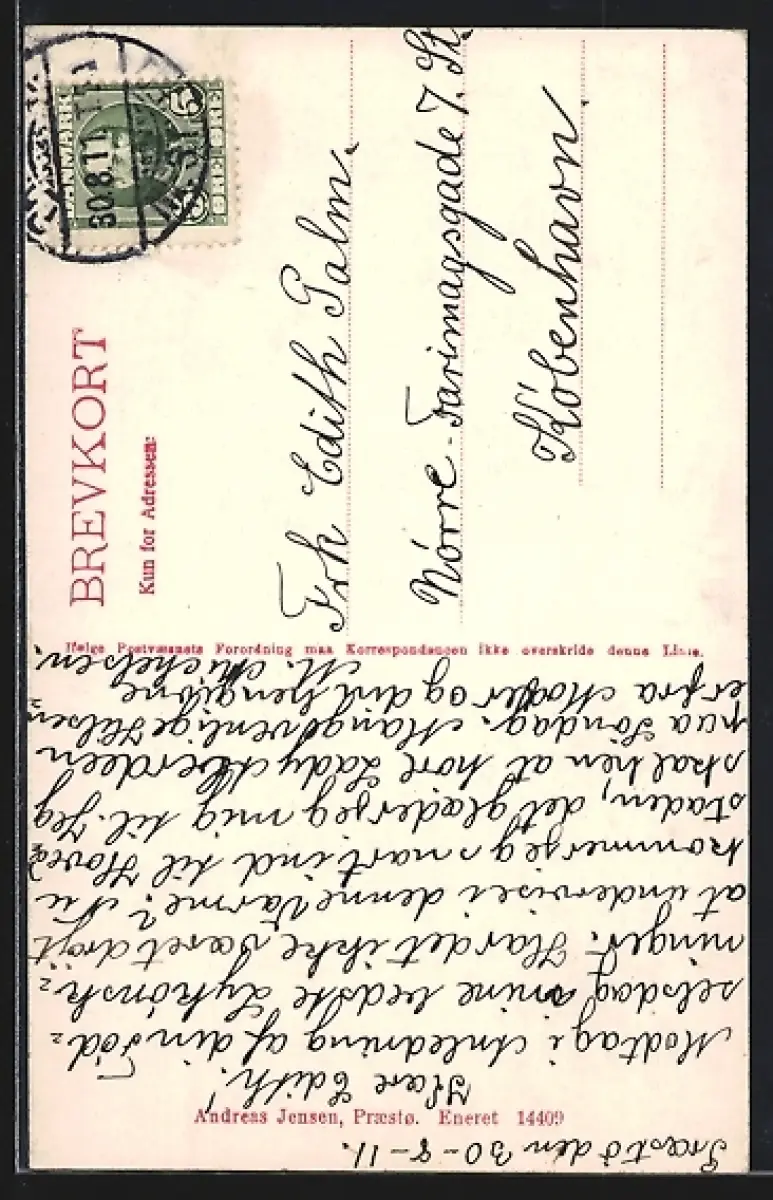 BREVKORT
Kun for Adressen:
DANMARK
5 ØRE
30.8.11
Frk Edith Palm.
Nörre-Farimagsgade 7. St.
Köbenhavn.
Ifølge Postvæsenets Forordning maa Korrespondancen ikke overskride denne Linie.
Andreas Jensen, Præstø. Eneret 14409
Præstö den 30-8-11.
Kære Edith!
Modtag i Anledning af din Föd=
selsdag mine bedste Lykönsk=
ninger. Har det ikke været dröjt
at undervise i denne Varme? Nu
kommer jeg snart ind til Hoved
staden, det glæder jeg mig til. Jeg
skal hen at höre Lady Aberdeen
paa Söndag. Mange venlige Hilsen
er fra Moder og din hengivne
M. Michelsen.